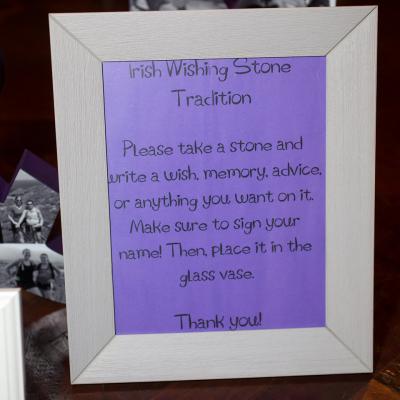 Irish Wishing Stone
Tradition
Please take a stone and
write a wish, memory, advice,
or anything you want on it.
Make sure to sign your
name! Then, place it in the
glass vase.
Thank you!